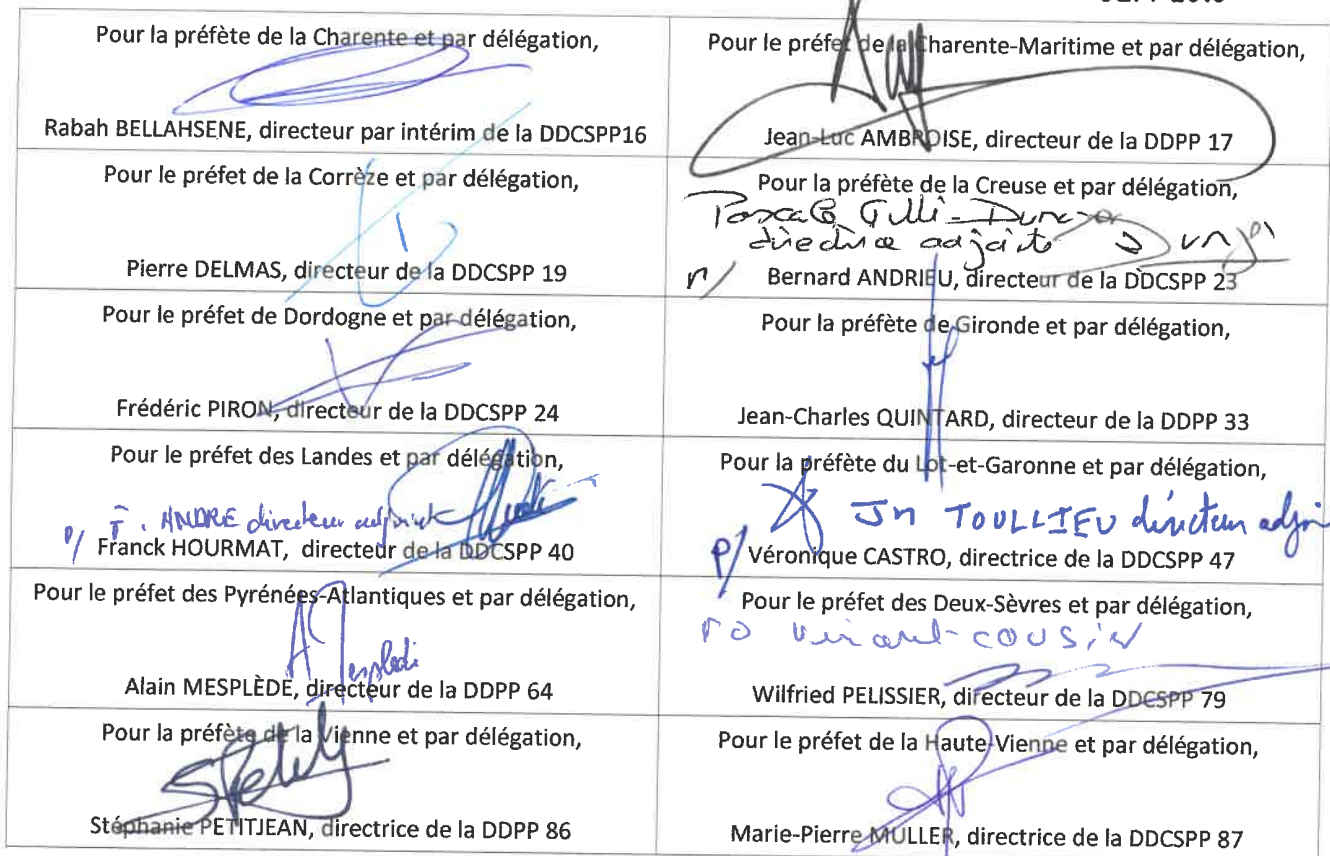 Pour la préfète de la Charente et par délégation,
Rabah BELLAHSENE, directeur par intérim de la DDCSPP16
Pour le préfet de la Charente-Maritime et par délégation,
Jean-Luc AMBROISE, directeur de la DDPP 17
Pour le préfet de la Corrèze et par délégation,
Pierre DELMAS, directeur de la DDCSPP 19
Pour la préfète de la Creuse et par délégation,
directrice adjointe
P/ Bernard ANDRIEU, directeur de la DDCSPP 23
Pour le préfet de Dordogne et par délégation,
Frédéric PIRON, directeur de la DDCSPP 24
Pour la préfète de Gironde et par délégation,
Jean-Charles QUINTARD, directeur de la DDPP 33
Pour le préfet des Landes et par délégation,
F. ANDRE directeur adjoint
P/ Franck HOURMAT, directeur de la DDCSPP 40
Pour la préfète du Lot-et-Garonne et par délégation,
JM TOULLIEU directeur adjoi
P/ Véronique CASTRO, directrice de la DDCSPP 47
Pour le préfet des Pyrénées-Atlantiques et par délégation,
Alain MESPLÈDE, directeur de la DDPP 64
Pour le préfet des Deux-Sèvres et par délégation,
PO COUSIN
Wilfried PELISSIER, directeur de la DDCSPP 79
Pour la préfète de la Vienne et par délégation,
Stéphanie PETITJEAN, directrice de la DDPP 86
Pour le préfet de la Haute-Vienne et par délégation,
Marie-Pierre MULLER, directrice de la DDCSPP 87